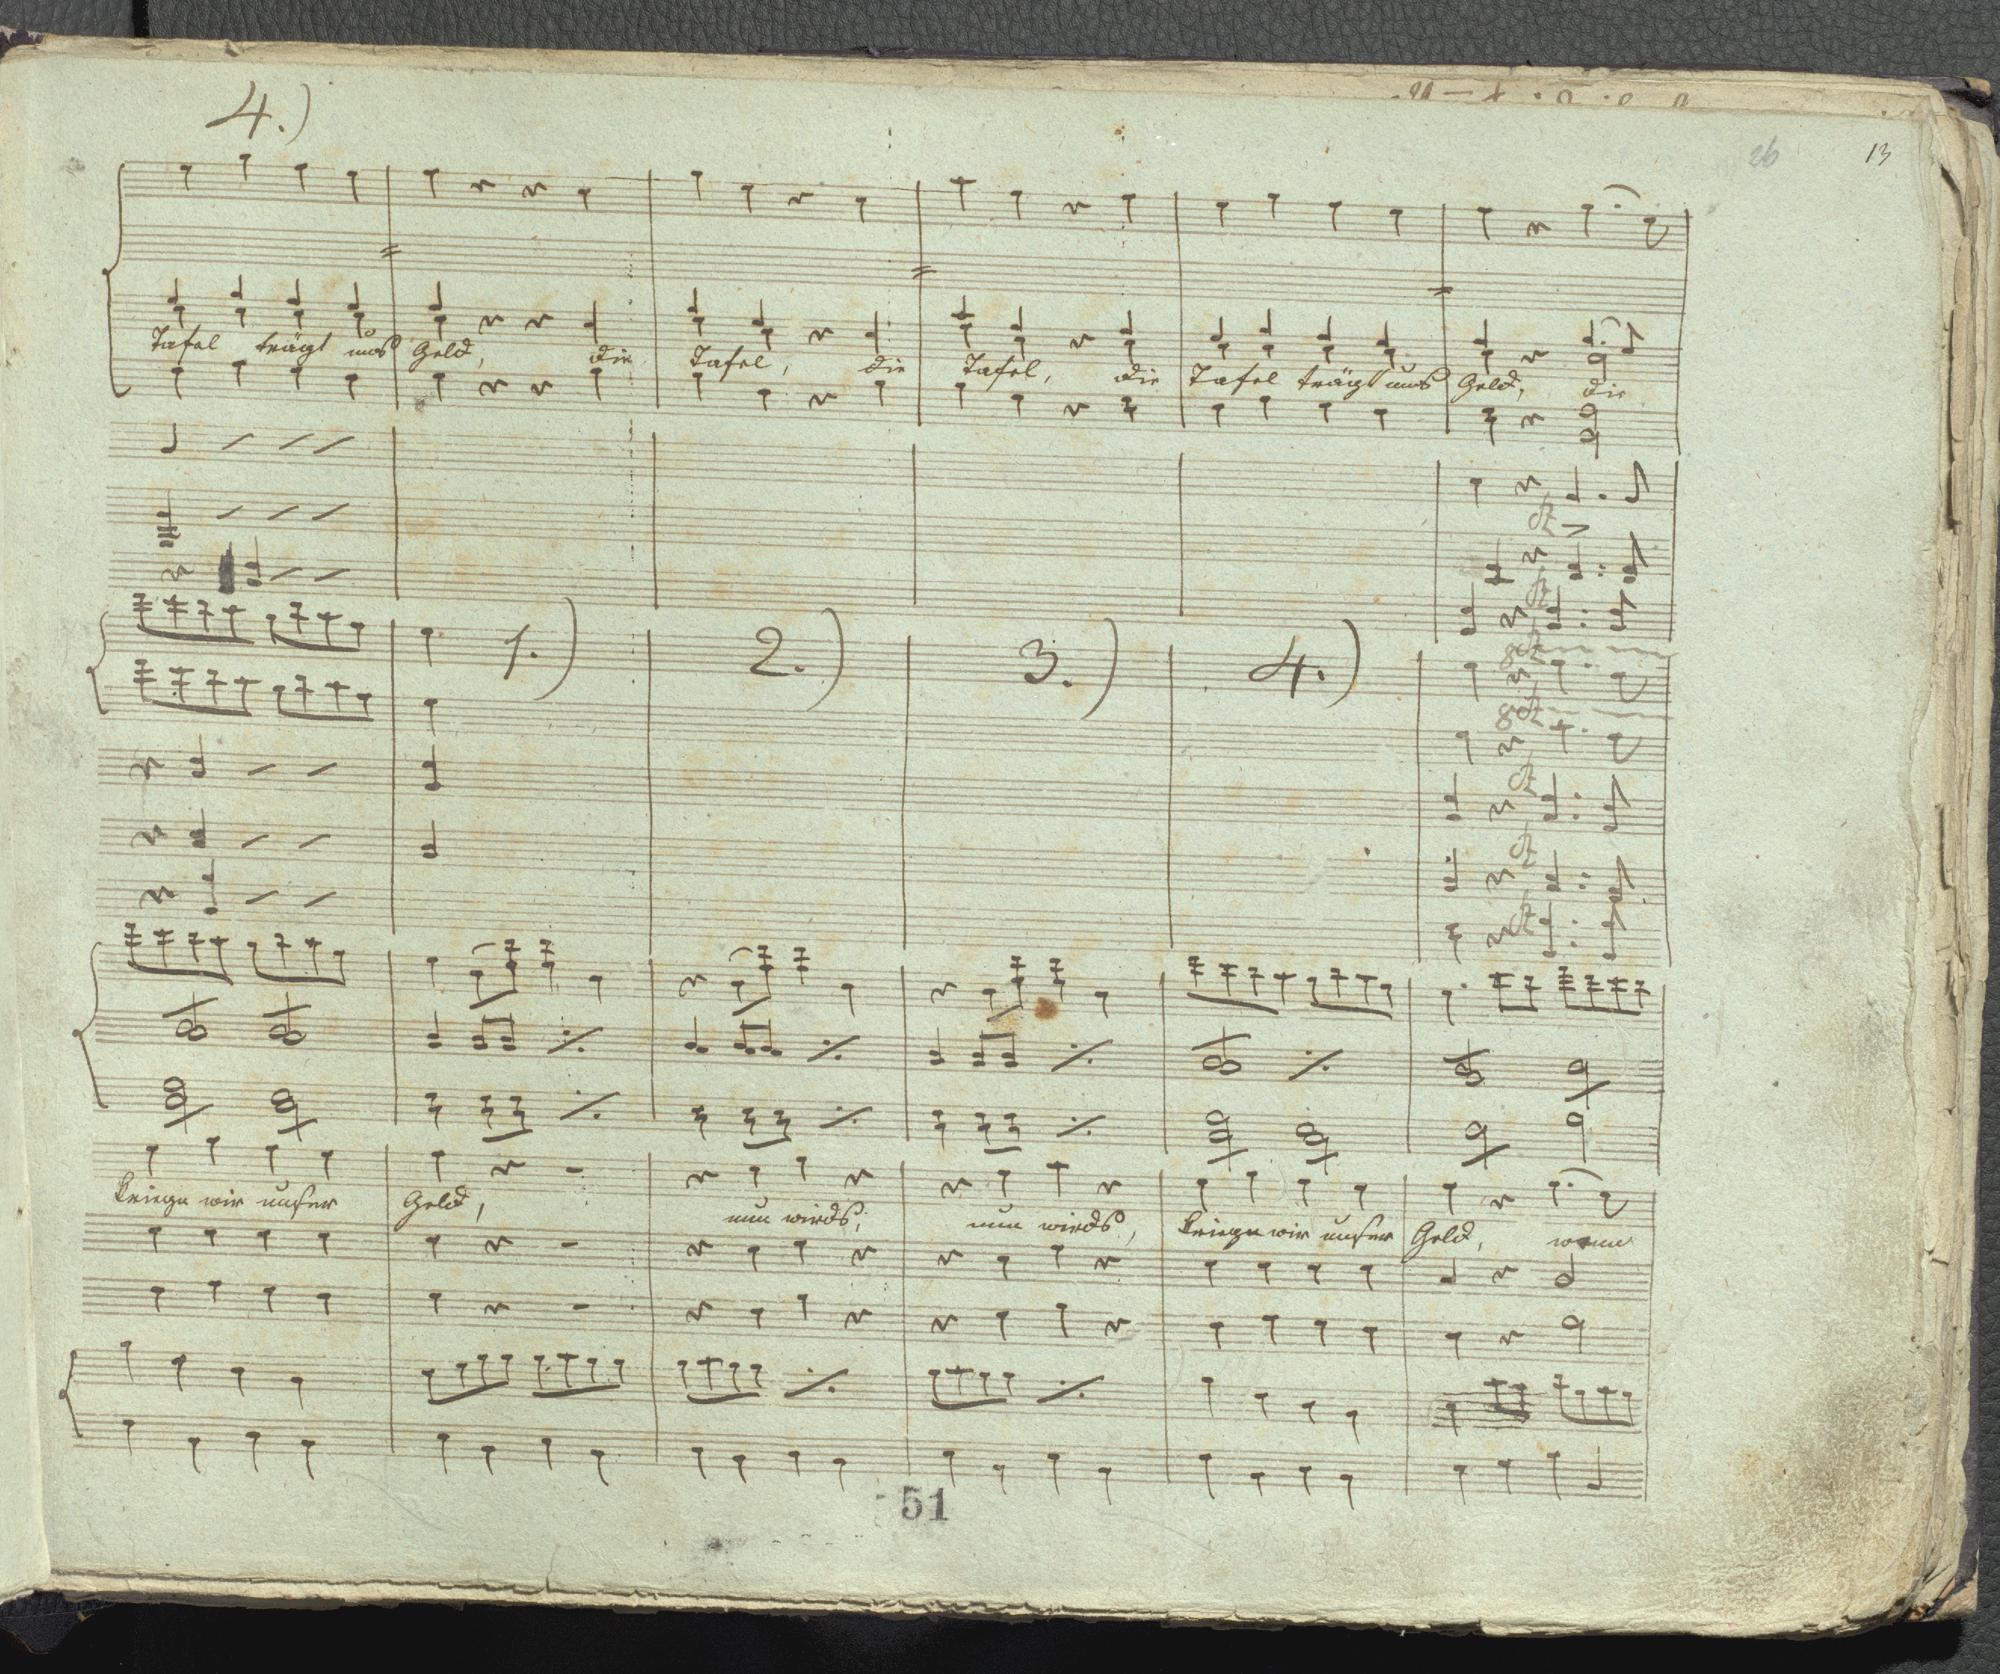 4.)
26 13
Tafel trägt uns Geld, die Tafel, die Tafel, die Tafel trägt uns Geld, die
1.) 2.) 3.) 4.)
kriegn wir unser Geld, nun wirds, nun wirds, kriegn wir unser Geld, wenn
51